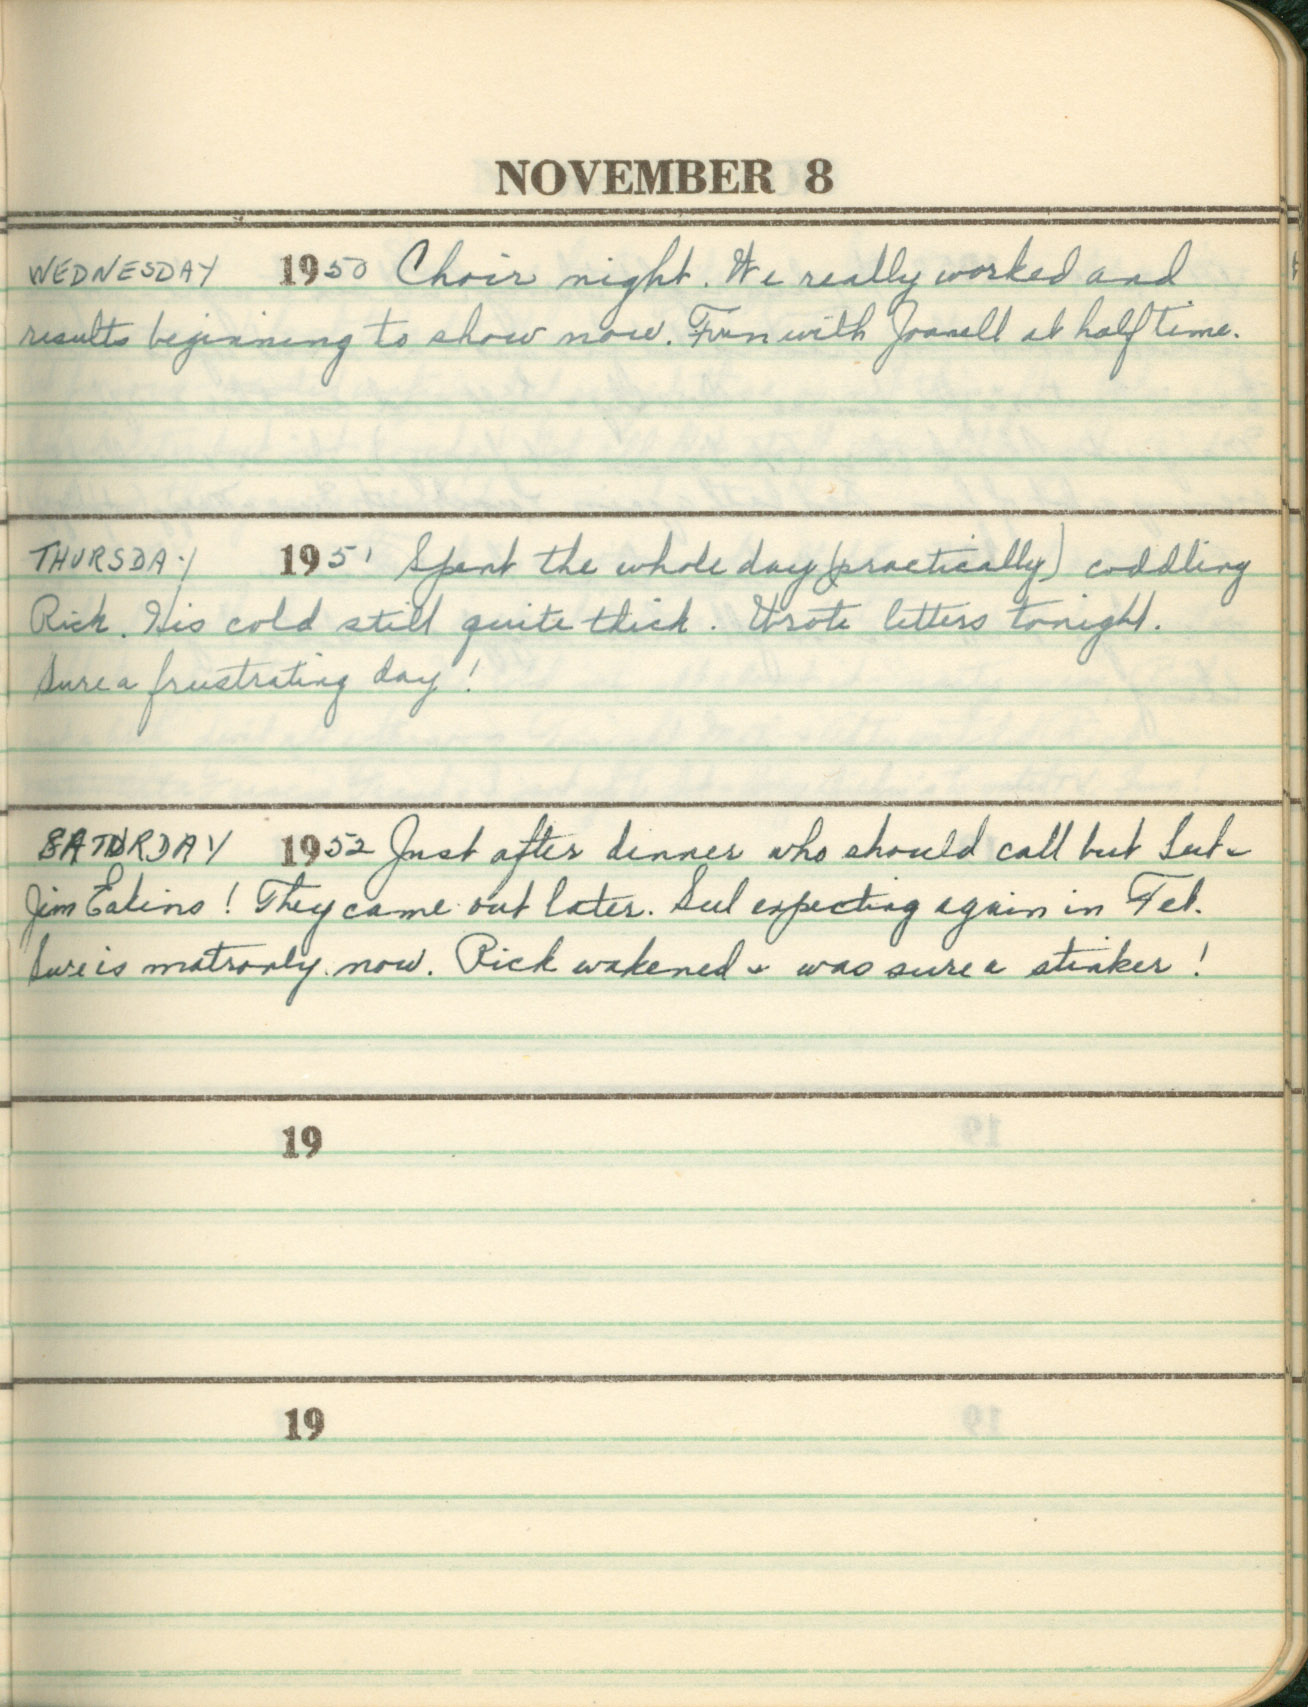 NOVEMBER 8
WEDNESDAY 1950 Choir night. We really worked and
results beginning to show now. Fun with Joanell at half time.
THURSDAY 1951 Spent the whole day (practically) coddling
Rick. His cold still quite thick. Wrote letters tonight.
Sure a frustrating day!
SATURDAY 1952 Just after dinner who should call but &
Jim Eakins! They came out later. expecting again in Feb.
Sure is matronly now. Rick wakened & was sure a stinker!
19
19